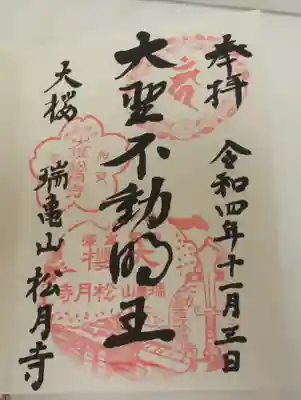 奉拝
令和四年十一月三日
大聖不動明王
大桜
瑞亀山松月寺